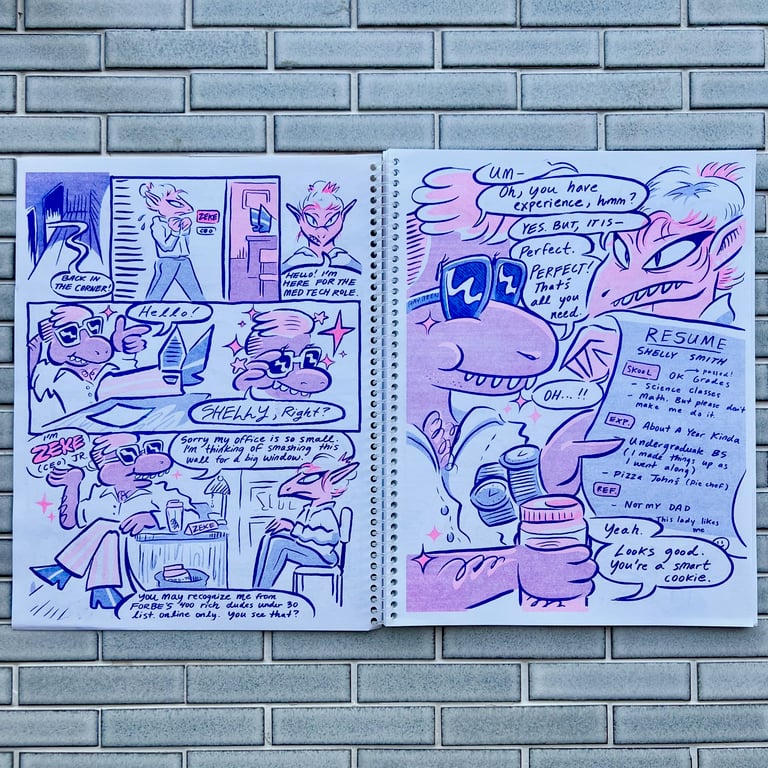 BACK IN
THE CORNER!
ZEKE
CEO
HELLO! I'M
HERE FOR THE
MED TECH ROLE.
Hello!
SHELLY, Right?
I'M
ZEKE
(CEO) JR.
Sorry my office is so small.
I'm thinking of smashing this
wall for a big window.
ZEKE
You may recognize me from
FORBE'S '400 rich dudes under 30
list. online only. You see that?
UM-
Oh, you have
experience, hmm?
YES. BUT, IT IS-
Perfect.
PERFECT!
That's
all you
need.
OH...!!
RESUME
SHELLY SMITH
SKOOL
OK Grades
→ passed!
- Science classes
- Math. But please don't
make me do it
EXP.
About A Year Kinda
- Undergraduate BS
(I made things up as
I went along)
- Pizza John's (Pie chef)
REF.
- Not my DAD
- This lady likes
me
Yeah.
Looks good.
You're a smart
cookie.